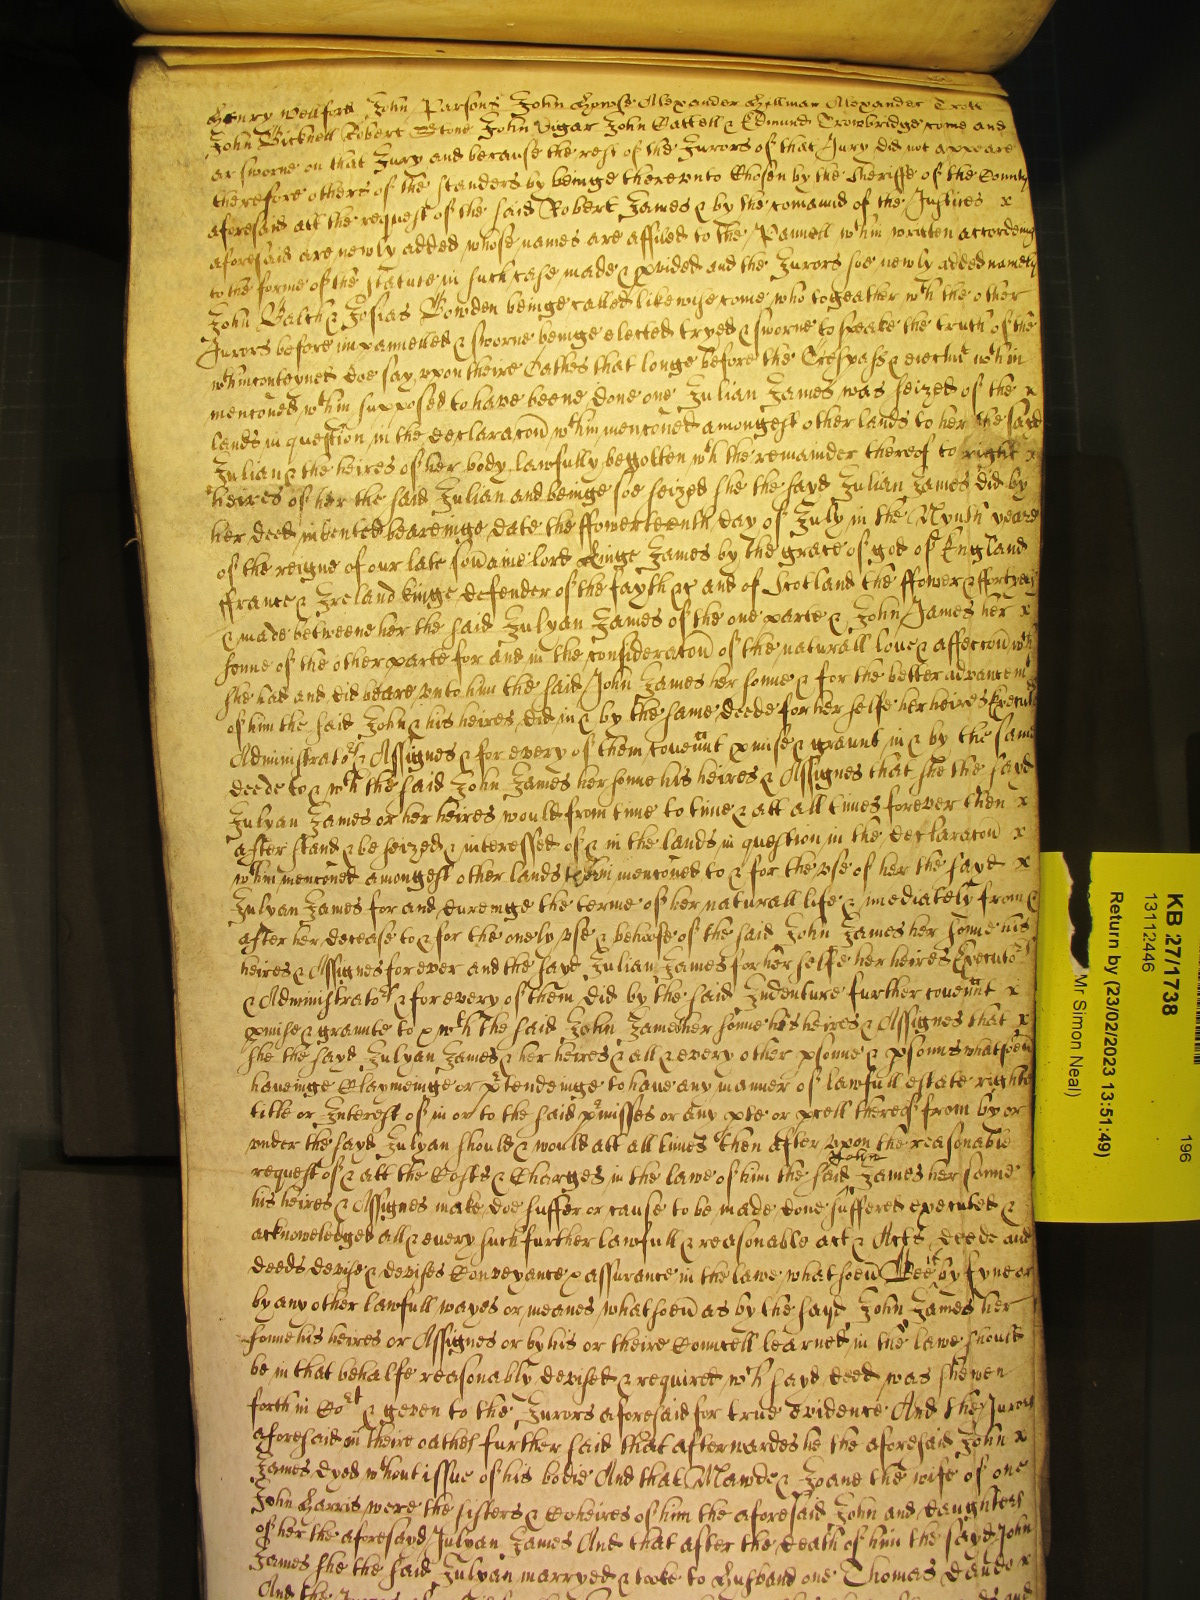 Henry Wellford John Parsons John Howse Alexander Hellman Alexander Trott
John Bicknell Robert Stone John Vigar John Cattell & Edmund Trowbridge come and
ar sworne on that Jury and because the rest of the Jurors of that Jury did not appeare
therefore others of the standers by beinge therevnto Chosen by the Sheriffe of the County
aforesaid att the request of the said Robert James & by the comaund of the Justices x
aforesaid are newly added whose names are affiled to the Pannell wthin written accordeing
to the forme of the statute in such case made & pvided and the Jurors soe newly added namely
John Balch & Josias Bowden beinge called likewise come who togeather wth the other
Jurors before impannelled & sworne beinge elected tryed & sworne to speake the truth of the
wthinconteyned doe say vpon theire Oathes that longe before the Trespass & eiectmt wthin
menconed wthin supposed to have beene done one Julian James was seized of the x
lands in question in the declaracon wthin menconed amongest other lands to her the sayd
Julian & the heires of her body lawfully begotten wth the remainder thereof to right x
heires of her the said Julian and beinge soe seized she the sayd Julian James did by
her deed indented beareinge date the ffowerteenth day of July in the Nynth yeare
of the reigne of our late soveraine lord Kinge James by the grace of god of England
ffrance & Ireland kinge defender of the fayth &c and of Scotland the ffower & ffortyeth
& made betweene her the said Julyan James of the one parte & John James her x
sonne of the other parte for and in the consideracon of the naturall love & affeccon wch
she had and did beare vnto him the said John James her sonne & for the better advancemt
of him the said John & his heires did in & by the same deede for her selfe her heires Executors
Administrators & Assignes & for every of them covennt pmise & graunt in & by the same
deede to & wth the said John James her sonne his heires & Assignes that she the sayd
Julyan James or her heires would from time to time & att all times forever then x
after stand & be seized & interessed of & in the lands in question in the declaracon x
wthin menconed amongest other lands therin menconed to & for the vse of her the sayd x
Julyan James for and dureinge the terme of her naturall life & imediately from &
after her decease to & for the onely vse & behoofe of the said John James her sonne his
heires & Assignes forever and the sayd Julian James for her selfe her heires Executors
& Administrators & for every of them did by the said Indenture further covennt x
pmise & graunte to & wth the said John James her sonne his heires & Assignes that x
she the sayd Julyan James & her heires & all & every other psonne & psonns whatsoevr
haveinge Claymeinge or ptendeinge to have any manner of lawfull estate righte
title or Interest of in or to the said pmisses or any pte or pcell thereof from by or
vnder the sayd Julyan should & would att all times then after vpon the reasonable
request of & att the Costs & Charges in the lawe of him the said John James her sonne
his heires & Assignes make doe suffer or cause to be made done suffered executed &
acknowledged all & every such further lawfull & reasonable act & Acts deede and
deeds devise & devises Conveyance & assurance in the lawe whatsoevr Bee it by fyne or
by any other lawfull wayes or meanes whatsoevr as by the sayd John James her
sonne his heires or Assignes or by his or theire Councell learned in the lawe should
be in that behalfe reasonably devised & required wch sayd deed was shewen
forth in Cort & geven to the Jurors aforesaid for true evidence And the Jurors
aforesaid in theire oathes further said that afterwardes he the aforesaid John x
James dyed wthout issue of his bodie And that Mawde & Joane the wife of one
John Harris were the sisters & Coheires of him the aforesaid John and daughters
of her the aforesayd Julyan James And that after the death of him the sayd John
James she the said Julyan marryed & tooke to Husband one Thomas Daudo x
And the Jurors
KB 27/1738
13112446
196
Return by (23/02/2023 13:51:49)
Mr Simon Neal)